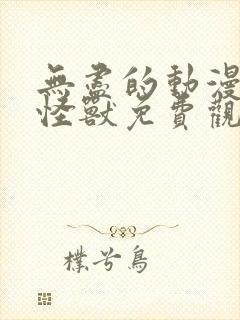 無盡的動漫
怪獸免費觀
樸兮鳥